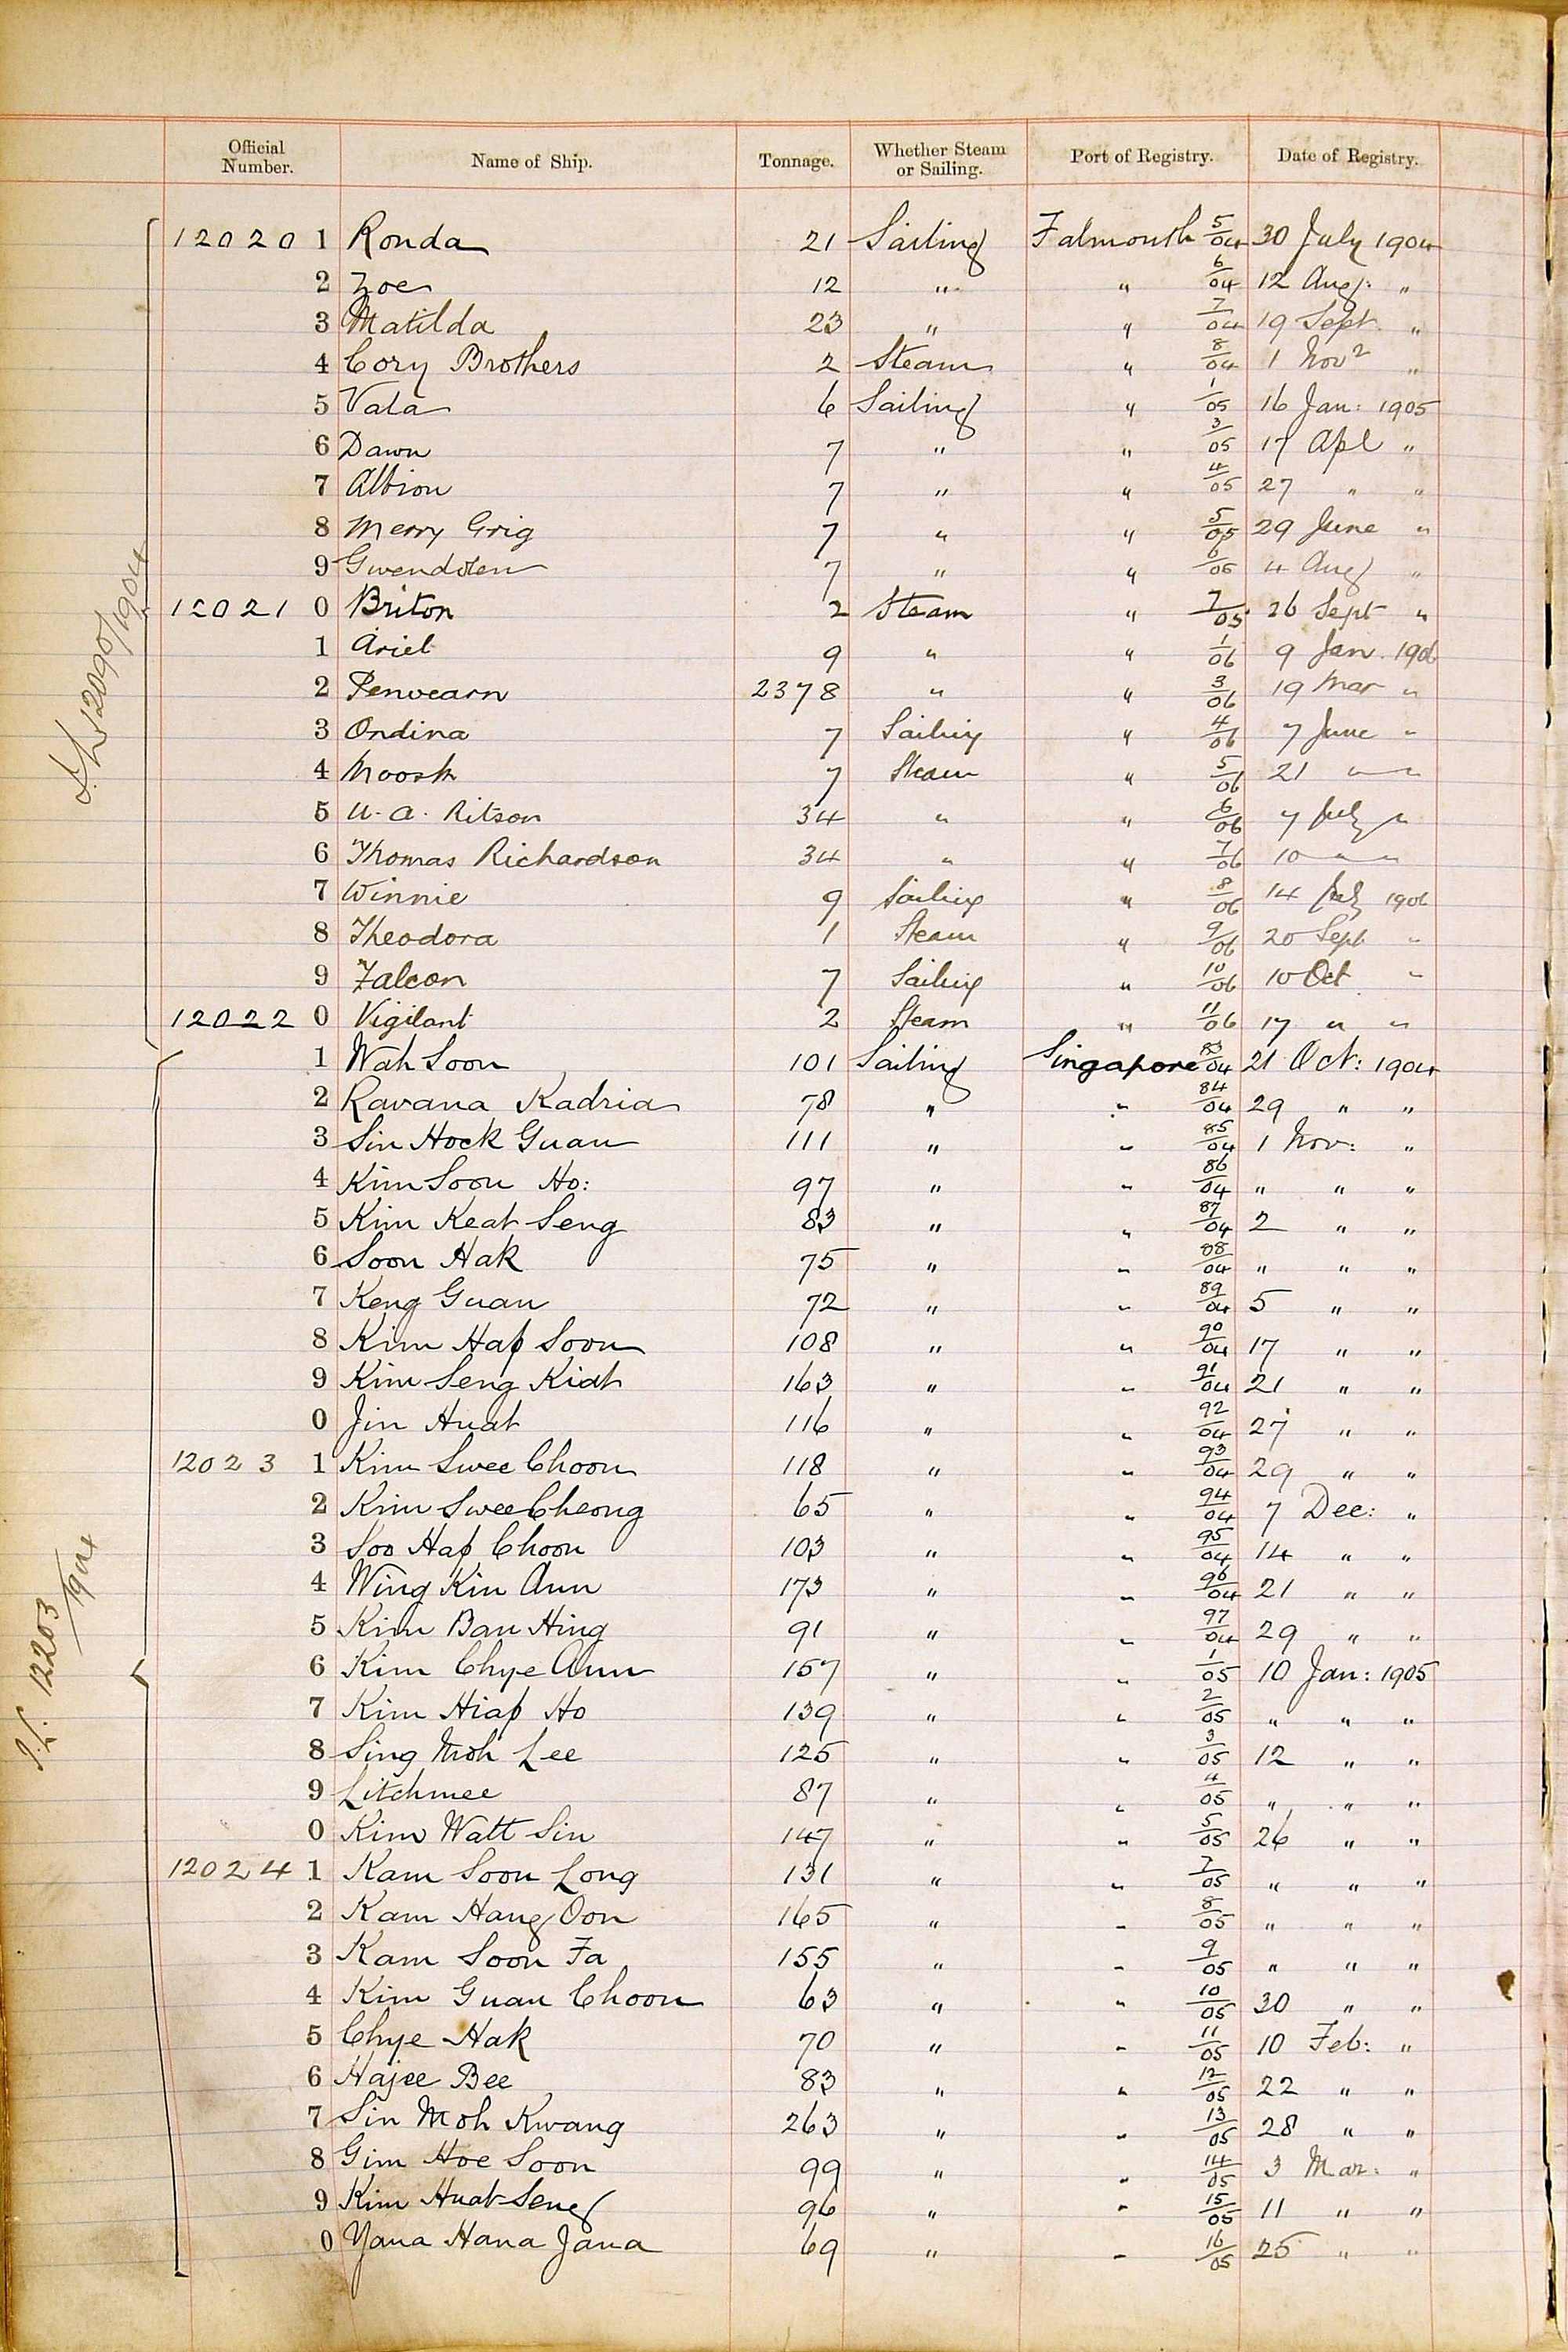 Official Number. Name of Ship. Tonnage. Whether Steam or Sailing. Port of Registry. Date of Registry.
12020 1 Ronda 21 Sailing Falmouth 5/04 30 July 1904
2 Zoe 12 " " 6/04 12 Aug: "
3 Matilda 23 " " 7/04 19 Sept. "
4 Cory Brothers 2 Steam " 8/04 1 Nov "
5 Vala 6 Sailing " 1/05 16 Jan: 1905
6 Dawn 7 " " 3/05 17 Apl "
7 Albion 7 " " 4/05 27 " "
8 Merry Grig 7 " " 5/05 29 June "
9 Gwendolen 7 " " 6/05 4 Aug "
12021 0 Briton 2 Steam " 7/05 26 Sept "
1 Ariel 9 " " 1/06 9 Jan. 1906
2 Penvearn 2378 " " 3/06 19 Mar "
3 Ondina 7 Sailing " 4/06 7 June "
4 7 Steam " 5/06 21 " "
5 W. A. Ritson 34 " " 6/06 7 July "
6 Thomas Richardson 34 " " 7/06 10 " "
7 Winnie 9 Sailing " 8/06 14 July 1906
8 Theodora 1 Steam " 9/06 20 Sept "
9 Falcon 7 Sailing " 10/06 10 Oct "
12022 0 Vigilant 2 Steam " 11/06 17 " "
1 Wah Soon 101 Sailing Singapore 83/04 21 Oct: 1904
2 Ravana Kadria 78 " " 84/04 29 " "
3 Sin Hock Guan 111 " " 85/04 1 Nov: "
4 Kim Soon Ho: 97 " " 86/04 " " "
5 Kim Keat Seng 83 " " 87/04 2 " "
6 Soon Hak 75 " " 88/04 " " "
7 Keng Guan 72 " " 89/04 5 " "
8 Kim Hap Soon 108 " " 90/04 17 " "
9 Kim Seng Kiat 163 " " 91/04 21 " "
0 Jin Huat 116 " " 92/04 27 " "
12023 1 Kim Swee Choon 118 " " 93/04 29 " "
2 Kim Swee Cheong 65 " " 94/04 7 Dec: "
3 Soo Hap Choon 103 " " 95/04 14 " "
4 Wing Kin Ann 173 " " 96/04 21 " "
5 Kim Ban Hing 91 " " 97/04 29 " "
6 Kim Chye Ann 157 " " 1/05 10 Jan: 1905
7 Kim Hiap Ho 139 " " 2/05 " " "
8 Sing Moh Lee 125 " " 3/05 12 " "
9 Litchmee 87 " " 4/05 " " "
0 Kim Watt Sin 147 " " 5/05 26 " "
12024 1 Kam Soon Long 131 " " 7/05 " " "
2 Kam Hang Oon 165 " " 8/05 " " "
3 Kam Soon Fa 155 " " 9/05 " " "
4 Kim Guan Choon 63 " " 10/05 30 " "
5 Chye Hak 70 " " 11/05 10 Feb: "
6 Hajee Bee 83 " " 12/05 22 " "
7 Sin Moh Kwang 263 " " 13/05 28 " "
8 Gim Hoe Soon 99 " " 14/05 3 Mar: "
9 Kim Huat Seng 96 " " 15/05 11 " "
0 Yana Hana Jana 69 " " 16/05 25 " "
12090/1904
12203/1904